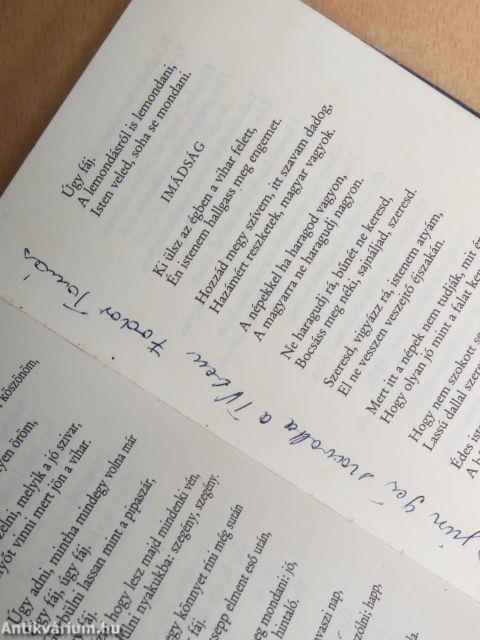 Úgy fáj.
A lemondásról is lemondani,
Isten veled, soha se mondani.
IMÁDSÁG
Ki ülsz az égben a vihar felett,
Én istenem hallgass meg engemet.
Hozzád megy szívem, itt szavam dadog,
Hazámért reszketek, magyar vagyok.
A népekkel ha haragod vagyon,
A magyarra ne haragudj nagyon.
Ne haragudj rá, bűnét ne keresd,
Bocsáss meg néki, sajnáljad, szeresd.
Szeresd, vigyázz rá, istenem atyám,
El ne vesszen veszejtő éjszakán.
Mert itt a népek nem tudják, mit
Hogy olyan jó mint a falat
Hogy nem szokott
Lassú dallal
Édes
szavalta a TV-ben Fodor Tamás
köszönöm,
öröm,
melyik a jó szivar,
vinni mert jön a vihar.
Úgy adni, mintha mindegy volna már
fáj, úgy fáj,
lassan mint a pipaszár,
hogy lesz majd mindenki vén,
nyakukba: szegény, szegény.
könnyet ríni még sután
csepp elment eső után,
még mondani: jó,
hintaló.
nap,
happ.
Antikvárium.hu